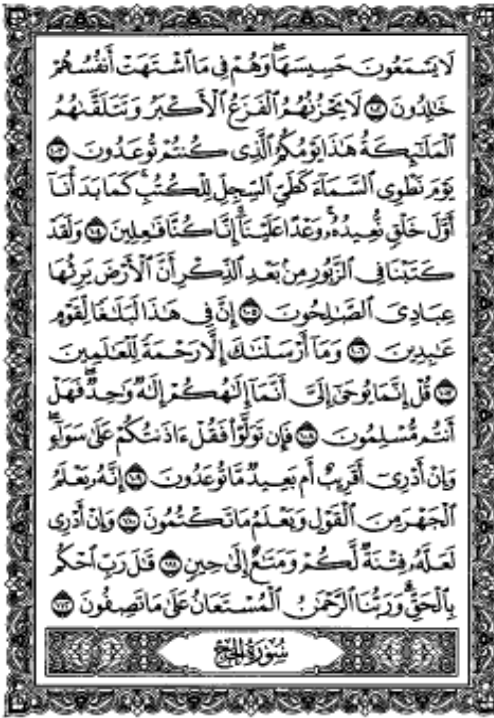 لَا يَسْمَعُونَ حَسِيسَهَا ۖ وَهُمْ فِي مَا اشْتَهَتْ أَنفُسُهُمْ
خَالِدُونَ ١٠٢ لَا يَحْزُنُهُمُ الْفَزَعُ الْأَكْبَرُ وَتَتَلَقَّاهُمُ
الْمَلَائِكَةُ هَٰذَا يَوْمُكُمُ الَّذِي كُنتُمْ تُوعَدُونَ ١٠٣
يَوْمَ نَطْوِي السَّمَاءَ كَطَيِّ السِّجِلِّ لِلْكُتُبِ ۚ كَمَا بَدَأْنَا
أَوَّلَ خَلْقٍ نُّعِيدُهُ ۚ وَعْدًا عَلَيْنَا ۚ إِنَّا كُنَّا فَاعِلِينَ ١٠٤ وَلَقَدْ
كَتَبْنَا فِي الزَّبُورِ مِنْ بَعْدِ الذِّكْرِ أَنَّ الْأَرْضَ يَرِثُهَا
عِبَادِيَ الصَّالِحُونَ ١٠٥ إِنَّ فِي هَٰذَا لَبَلَاغًا لِّقَوْمٍ
عَابِدِينَ ١٠٦ وَمَا أَرْسَلْنَاكَ إِلَّا رَحْمَةً لِّلْعَالَمِينَ
١٠٧ قُلْ إِنَّمَا يُوحَىٰ إِلَيَّ أَنَّمَا إِلَٰهُكُمْ إِلَٰهٌ وَاحِدٌ ۖ فَهَلْ
أَنتُم مُّسْلِمُونَ ١٠٨ فَإِن تَوَلَّوْا فَقُلْ ءَاذَنتُكُمْ عَلَىٰ سَوَاءٍ ۖ
وَإِنْ أَدْرِي أَقَرِيبٌ أَم بَعِيدٌ مَّا تُوعَدُونَ ١٠٩ إِنَّهُ يَعْلَمُ
الْجَهْرَ مِنَ الْقَوْلِ وَيَعْلَمُ مَا تَكْتُمُونَ ١١٠ وَإِنْ أَدْرِي
لَعَلَّهُ فِتْنَةٌ لَّكُمْ وَمَتَاعٌ إِلَىٰ حِينٍ ١١١ قَالَ رَبِّ احْكُم
بِالْحَقِّ ۗ وَرَبُّنَا الرَّحْمَٰنُ الْمُسْتَعَانُ عَلَىٰ مَا تَصِفُونَ ١١٢
سُورَةُ الْحَجِّ